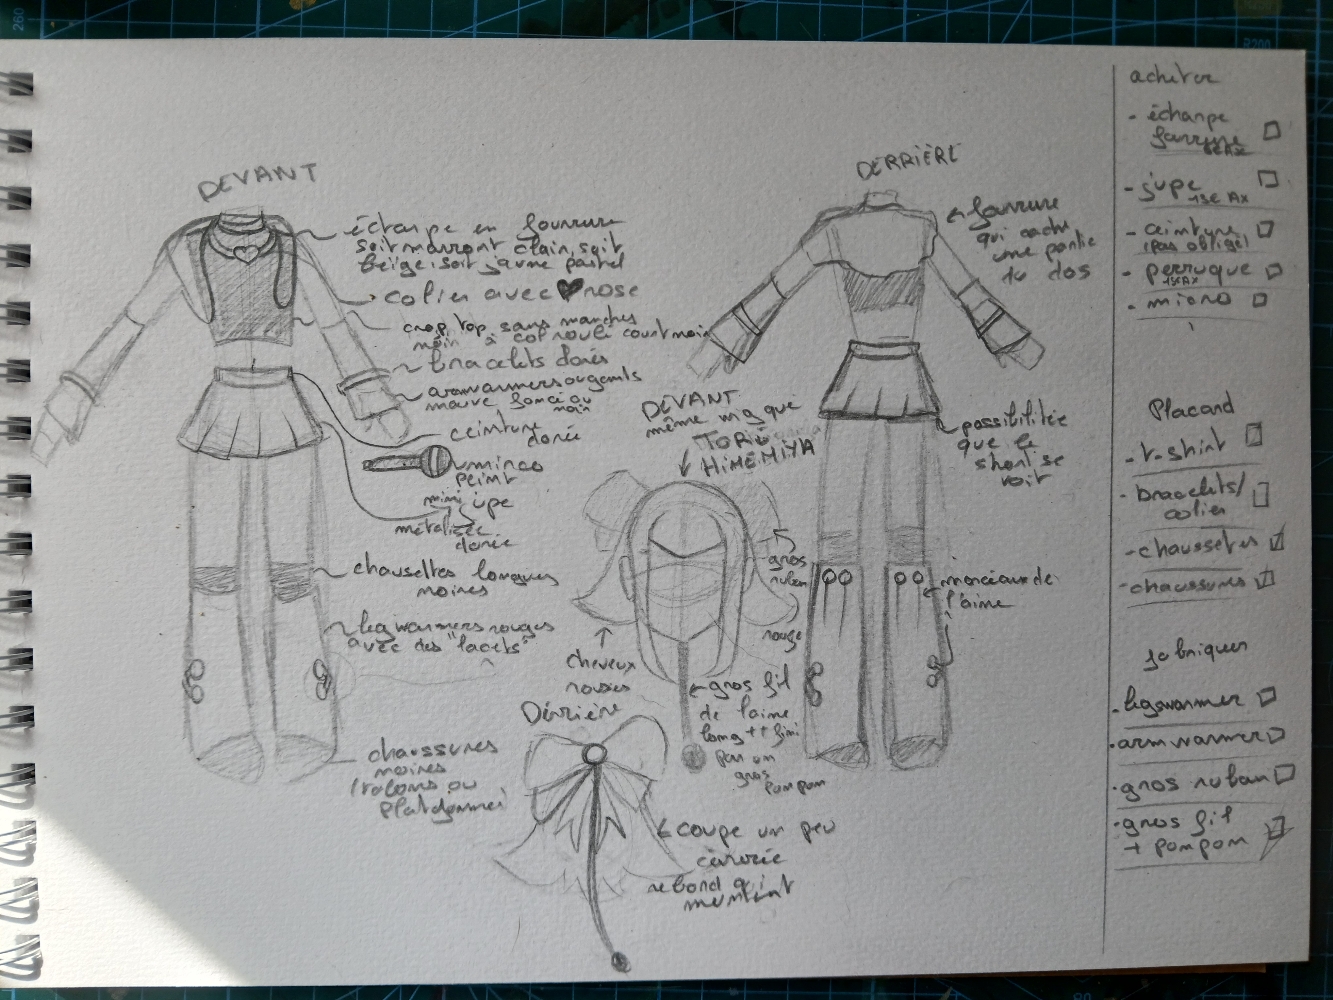 DEVANT
écharpe en fourrure
soit marront clair, soit
beige, soit jaune pastel
colier avec ♥ rose
crop top sans manches
noir à col roulé court noir
bracelets dorés
armwarmers argents
mauve foncé ou
noir
ceinture
dorée
micro
peint
mini jupe
métalisée
dorée
chaussettes longues
noires
legwarmers rouges
avec des "lacets"
chaussures
noires
(talons ou
platformes)
DERRIÈRE
fourrure
qui cache
une partie
du dos
possibilitée
que le
short se
voit
morceaux de
laine
DEVANT
même que
TORI
HIMEMIYA
gros
ruban
rouge
cheveux
roses
gros fil
de laine
long ++ fini
par un
gros
pompom
Dérrière
coupe un peu
carrée
rebond qui
montent
acheter
- écharpe
fourrure
- jupe
15€ AX
- ceinture
(pas obligé)
- perruque
15€AX
- micro
Placard
- t-shirt
- bracelets/
colier
- chaussettes
- chaussures
fabriquer
- legwarmer
- armwarmer
- gros ruban
- gros fil
+ pompom
260